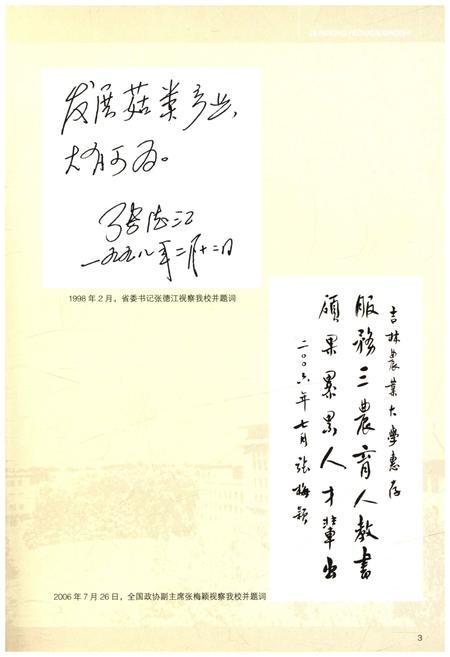 发展菇类产业，
大有可为。
张德江
一九九八年二月十二日
1998 年 2 月，省委书记张德江视察我校并题词
吉林农业大学惠存
服务三農育人教書
碩果累累人才輩出
二〇〇六年七月張梅颖
2006 年 7 月 26 日，全国政协副主席张梅颖视察我校并题词
3